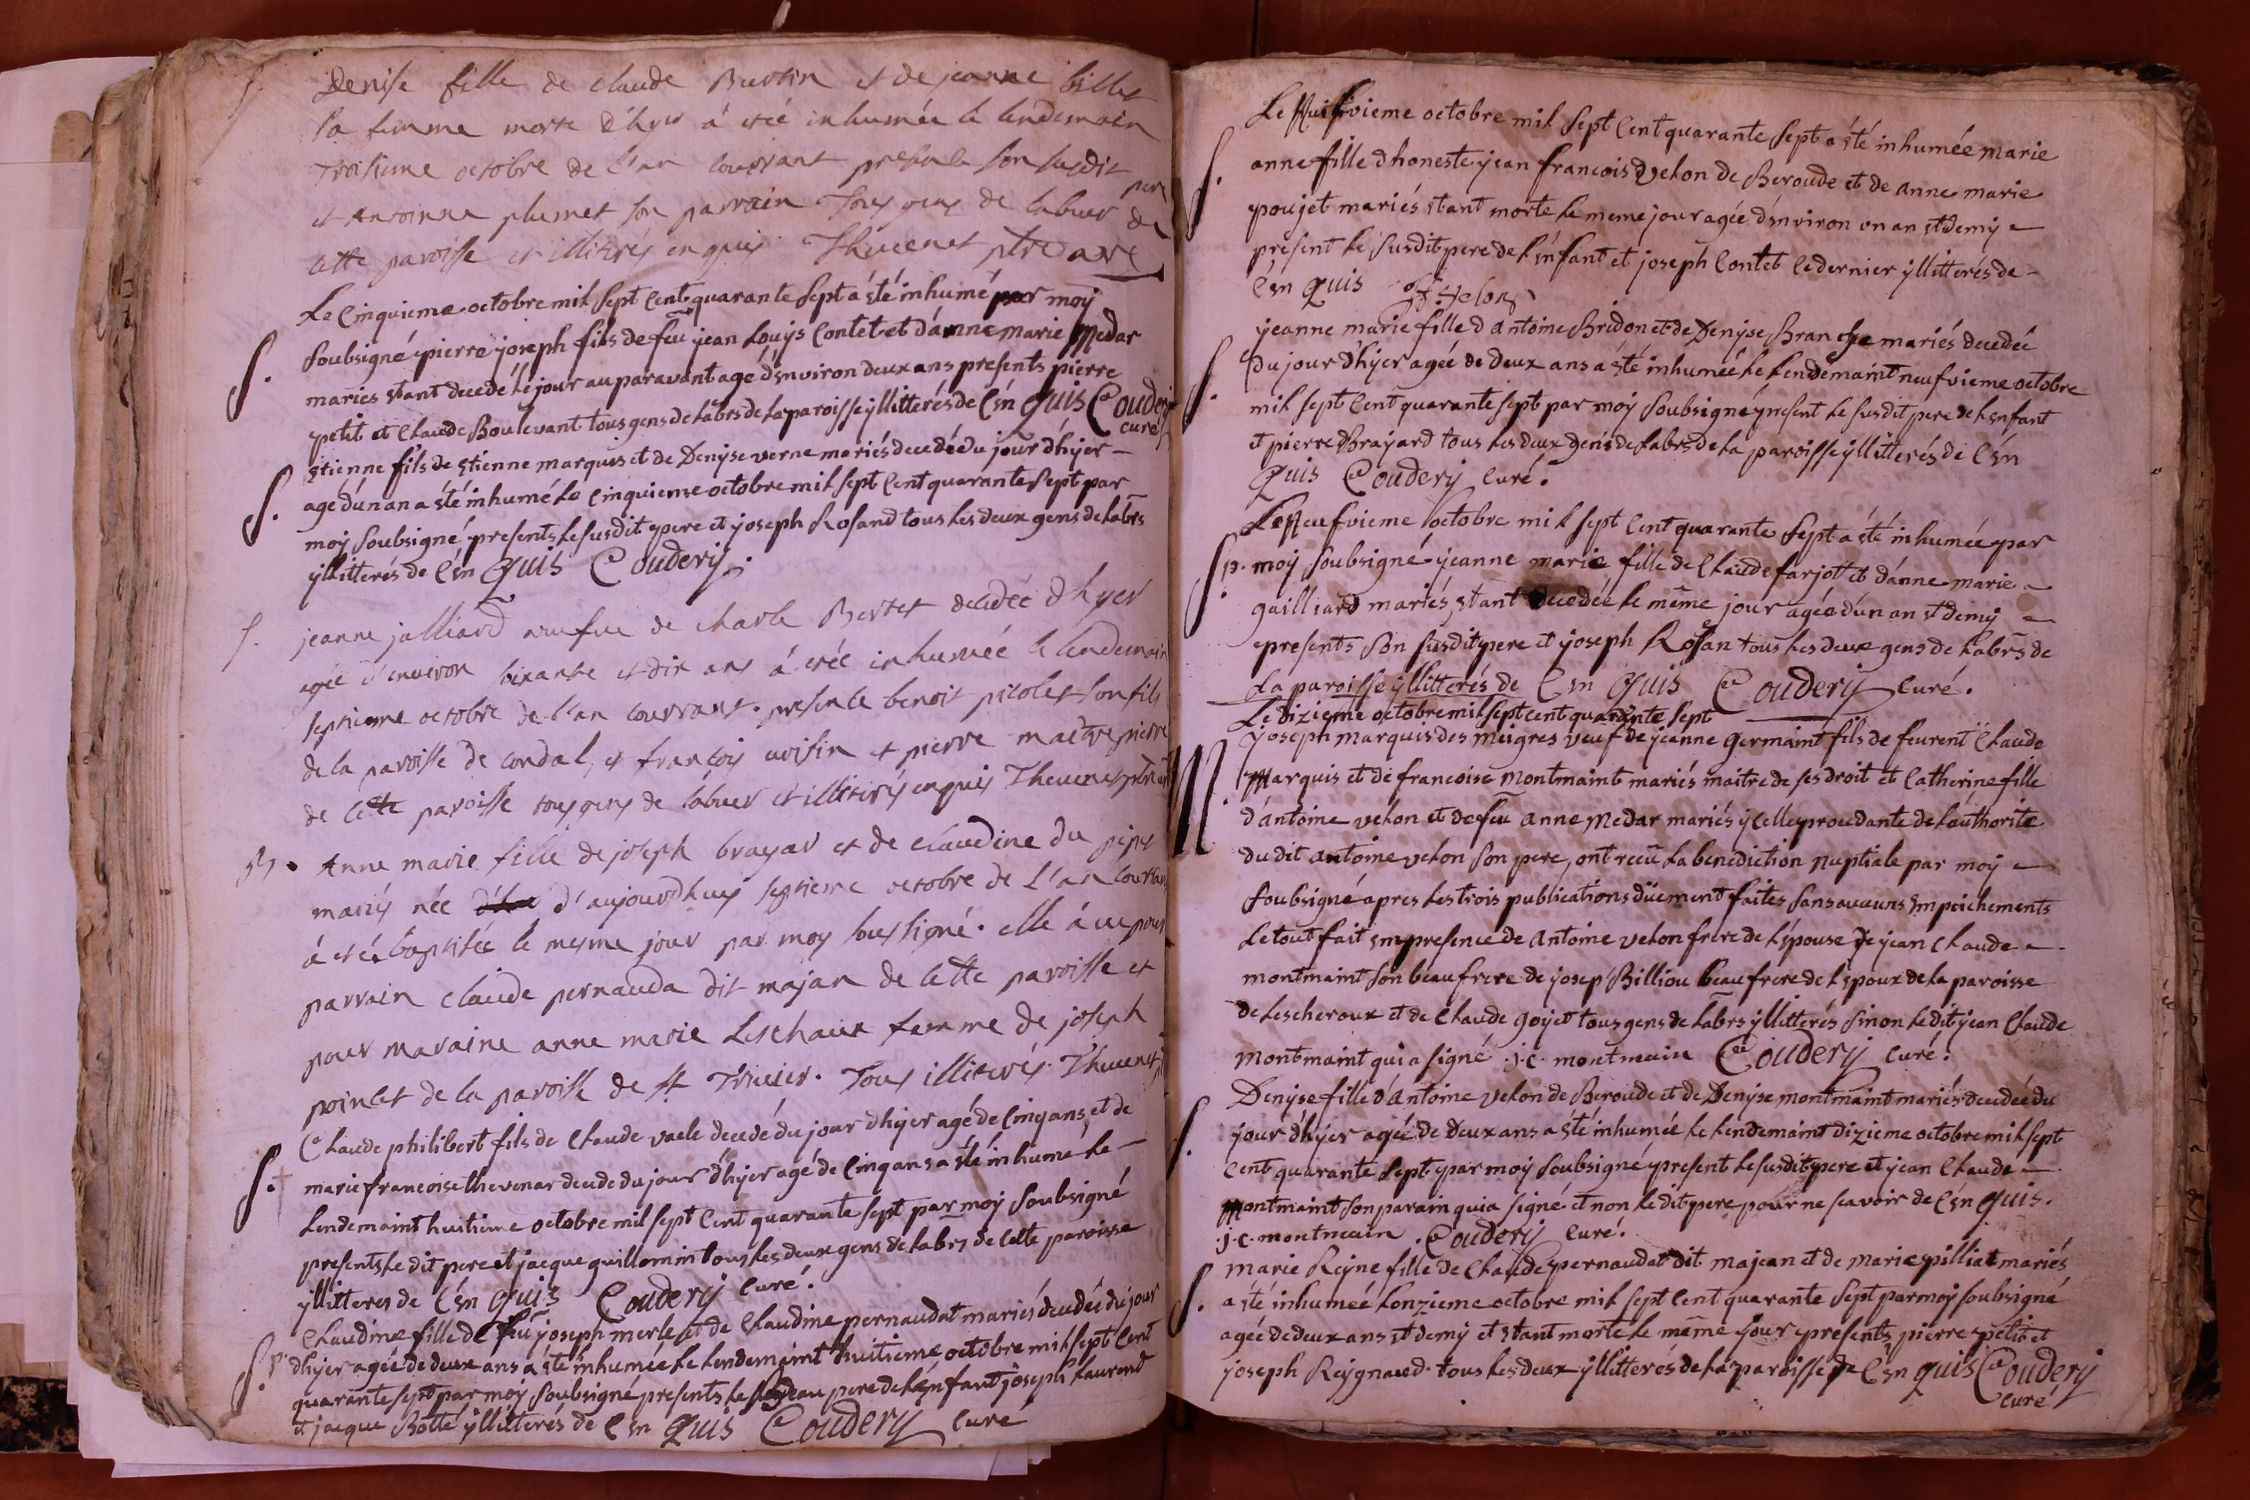 S. Denise fille de claude Burtin et de jeanne billet
sa femme morte d'hyer á etée inhumée le lendemain
troisieme octobre de l'an courrant presents son susdit pere
et Antoinne plumet son parrain tous gens de labeur de
cette paroisse et illitérés enquis Thevenet ptre
Le Cinquieme octobre mil sept Cent quarante sept a été inhumé par moy
S. soubsigné pierre joseph fils de feu jean Louys Contet et d'anne marie Medar
mariés etant decedé le jour auparavant agé d'environ deux ans presents pierre
petit et Claude Boulevant tous gens de labrs de la paroisse yllitterés de C én quis Coudery
curé
etienne fils de etienne marquis et de Denyse verne mariés decedé du jour d'hyer
S. agé d'un an a été inhumé le cinquieme octobre mil sept Cent quarante sept par
moy soubsigné presents le susdit pere et joseph Rosand tous les deux gens de labrs
yllitterés de C én quis Coudery.
S. jeanne jalliard veufve de charle Bertet decedée d'hyer
agée d'environ soixante et dix ans á etée inhumée le lendemain
septieme octobre de l'an courrant. presents benoit picolet son fils
de la paroisse de condal, et françois voisin et pierre maitrepierre
de cette paroisse tous gens de labeur et illiterés enquis Thevenet ptre
B. Anne marie fille de joseph brayar et de claudine du
mariés née d'aujourdhuy septieme octobre de L'an Courrant
á eté baptisée le mesme jour par moy soussigné. elle á eu pour
parrain claude pernauda dit majan de cette paroisse et
pour maraine anne marie Leschaux femme de joseph
poincet de la paroisse de st Trivier. Tous illiterés. Thevenet
Claude philibert fils de Claude vaele decedé du jour d'hyer agé de Cinq ans et de
S. marie francoise thevenar decedé du jour d'hyer agé de Cinq ans a été inhumé le
Lendemaint huitieme octobre mil sept Cent quarante sept par moy soubsigné
presents le dit pere et jacque guillomin tous les deux gens de labrs de Cette paroisse
yllitteres de C én quis Coudery curé.
Claudine fille de feu joseph merle et de Claudine pernaudat mariés decedée du jour
S. p. d'hyer agée de deux ans a été inhumée le Lendemaint huitieme octobre mil sept Cent
quarante sept par moy soubsigné presents le pere de l'enfant joseph Laurend
et jacque Botte yllitterés de C én quis Coudery Curé
Le Huitvieme octobre mil sept Cent quarante sept a été inhumée marie
S. anne fille d'honeste jean francois Velon de Beroude et de anne marie
poujet mariés etant morte le meme jour agée d'environ un an et demy
present le susdit pere de l'énfant et joseph Contet Ce dernier yllitterés de
C én quis velon
S. jeanne marie fille d'antoine Bridon et de Denyse Branche mariés decedée
du jour d'hyer agée de deux ans a été inhumée le Lendemaint neufvieme octobre
mil sept Cent quarante sept par moy soubsigné present le susdit pere de l'enfant
et pierre Brayard tous les deux gens de labrs de la paroisse yllitterés de C én
quis Coudery curé.
Le Neufvieme octobre mil sept Cent quarante sept a été inhumée par
S p. moy soubsigné jeanne marie fille de Claude farjot et d'anne marie
gailliard mariés, etant decedée le même jour agée d'un an et demy
presents son susdit pere et joseph Rosan tous les deux gens de labrs de
La paroisse yllitterés de C én quis Coudery curé.
Le dizieme octobre mil sept cent quarante sept
M. joseph marquis des meigres veuf de jeanne germaint fils de feurent Claude
Marquis et de francoise montmaint mariés maitre de ses droit et Catherine fille
d'antoine velon et de feu anne medar mariés ycelle proudante de l'áuthorité
du dit antoine velon son pere, ont receu la benediction nuptiale par moy
soubsigné apres les trois publications düement faites sans aucuns empeichements
Le tout fait en presence de antoine velon frere de l'épouse de jean Claude
montmaint son beau frere de josep Billiou beau frere de l'epoux de la paroisse
de Lescheroux et de Claude goyet tous gens de labrs yllitterés sinon le dit jean Claude
montmaint qui a signé. j. c. montmain Coudery curé.
Denyse fille d'antoine velon de Beroude et de Denyse montmaint mariés decedée du
S. jour d'hyer agée de deux ans a été inhumée le Lendemaint dizieme octobre mil sept
Cent quarante sept par moy soubsigné present le susdit pere et jean Claude
Montmaint son parain qui a signé et non le dit pere pour ne scavoir de C én quis.
j. c. montmain. Coudery curé.
marie Reyne fille de Claude pernaudat dit majean et de marie pilliat mariés
S. a été inhumée l'onzieme octobre mil sept Cent quarante sept par moy soubsigné
agée de deux ans et demy et etant morte le même jour presents pierre petit et
joseph Reygnaud tous les deux yllitterés de la paroisse de C én quis Coudery
curé